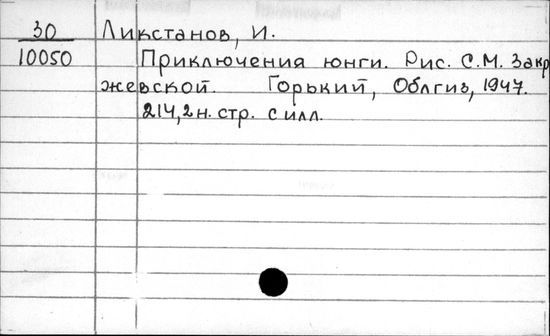 30 Ликстанов, И.
10050 Приключения юнги. Рис. С.М. Закр
жевской. Горький, Облгиз, 1947.
214,2н. стр. с илл.